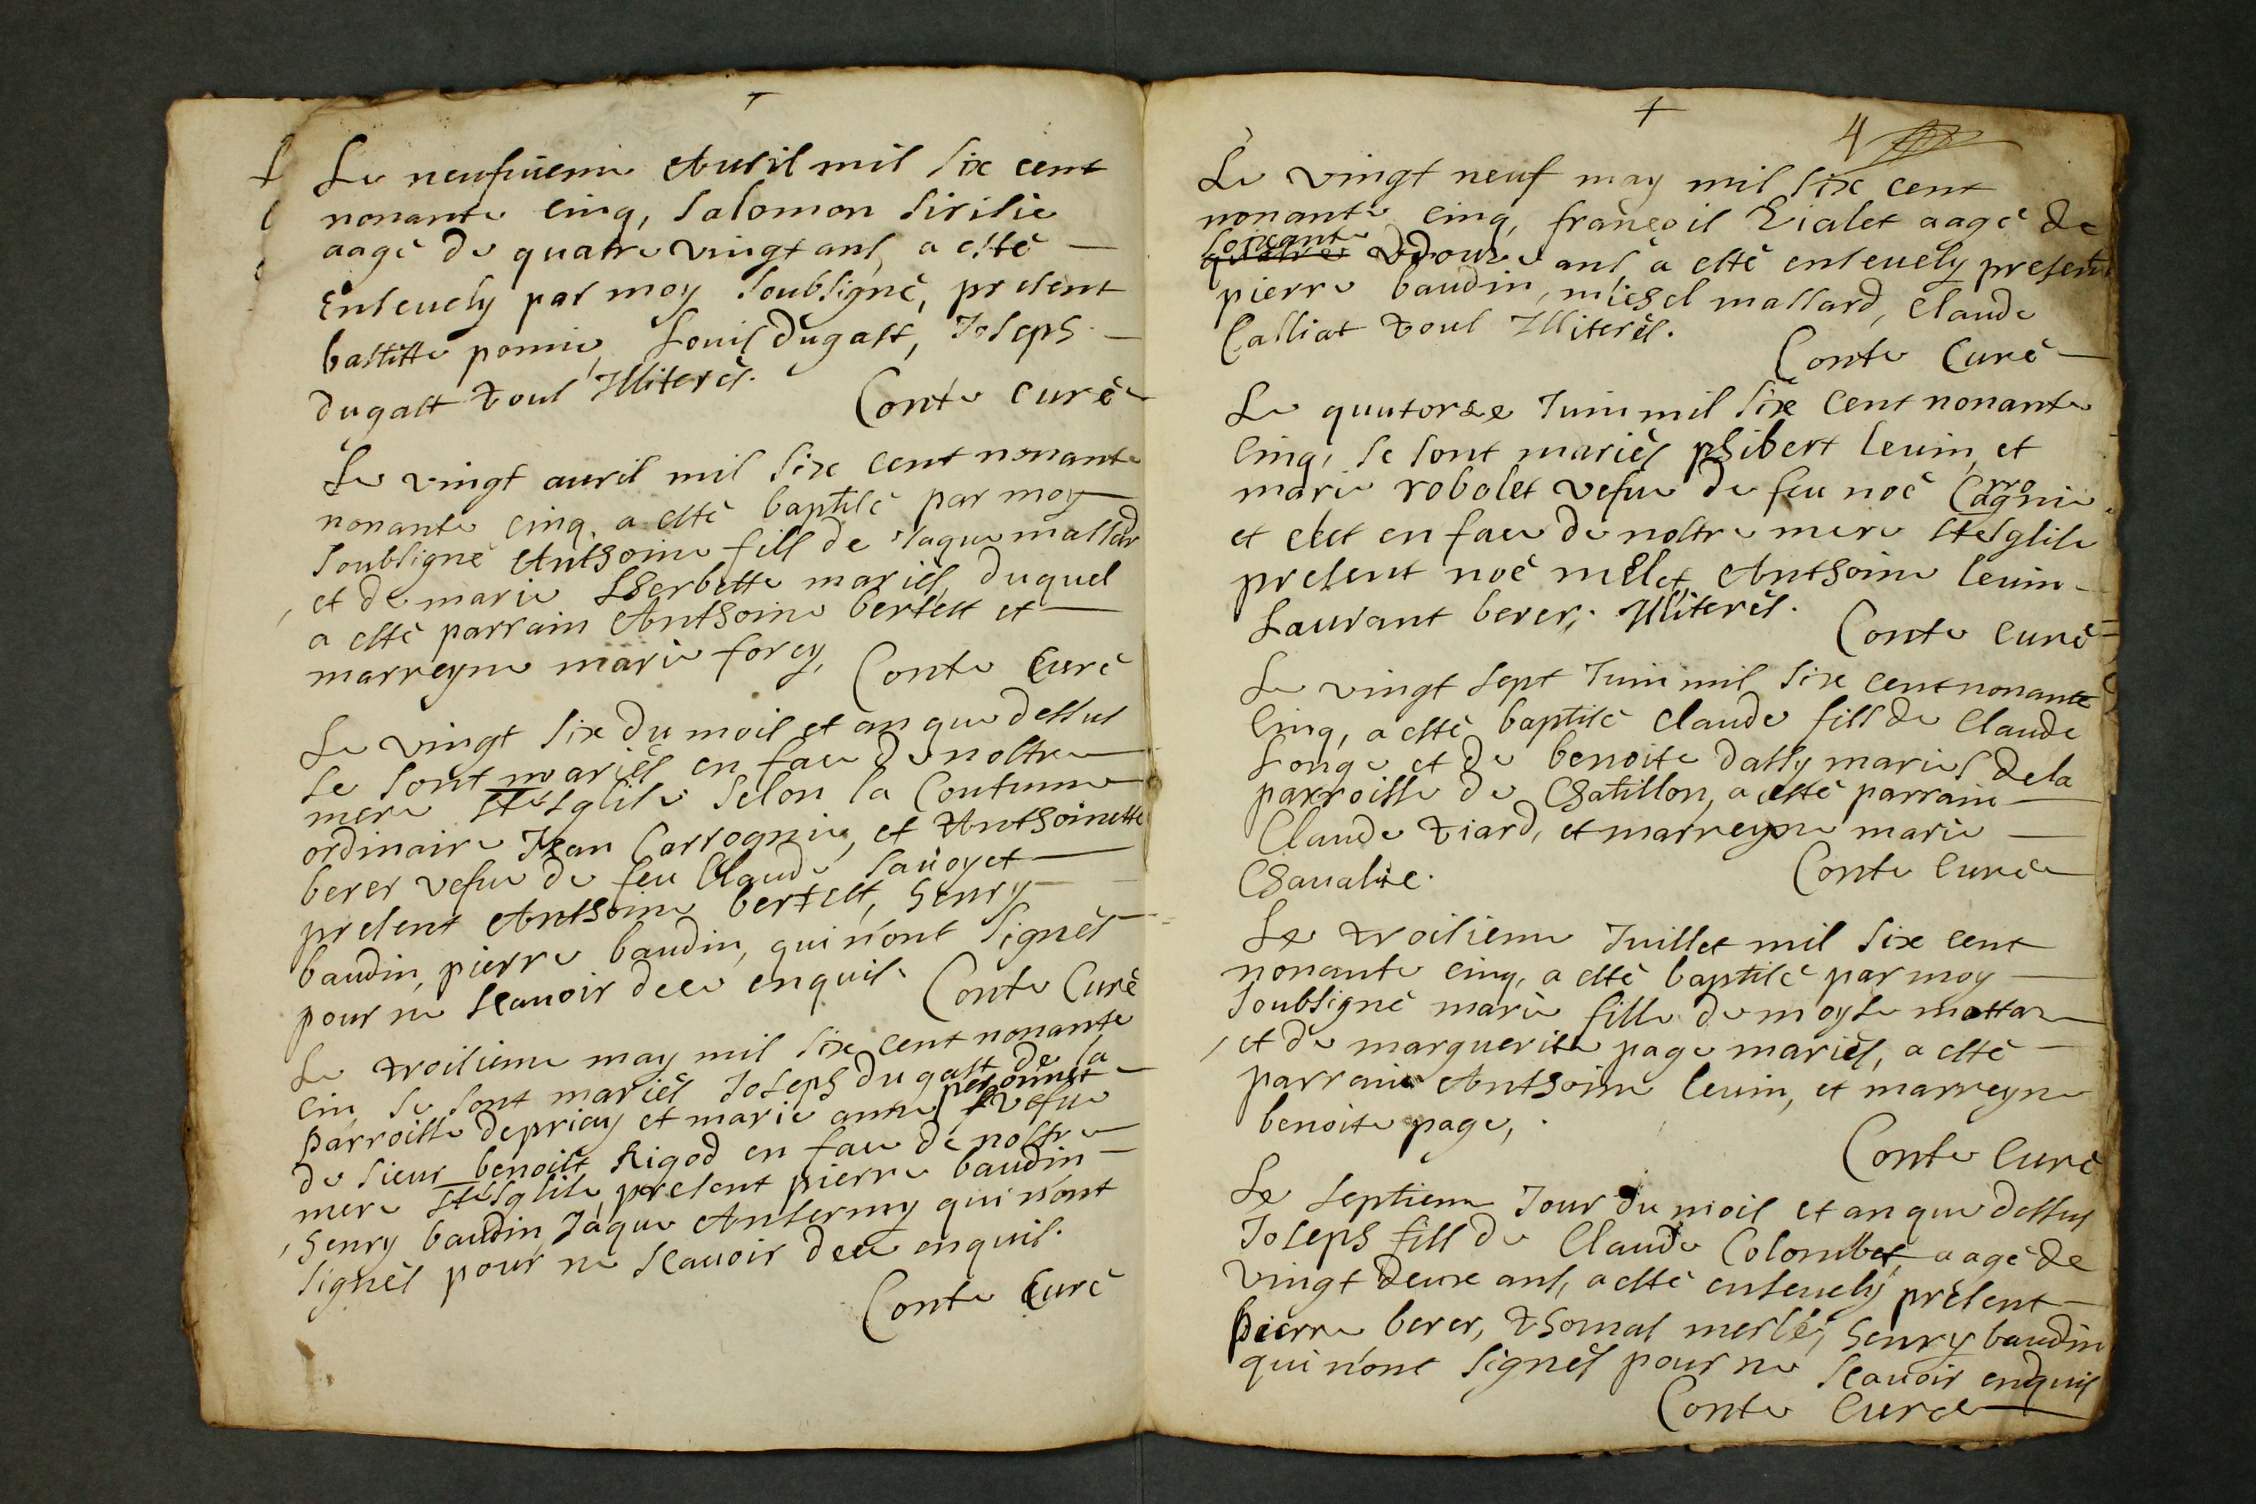 +
Le neufuieme Auril mil six cent
nonante cinq, Salomon Sirisie
aagé de quatre vingt ans a esté
enseuely par moy soubsigné, present
bastitte ponnie, Louis dugast, Joseph
dugast tous Illiterés. Conte curé
Le vingt auril mil six cent nonante
nonante cinq a esté baptisé par moy
soubsigné Anthoine fils de Jaque massard
et de marie Lherbette mariés, duquel
a esté parrain Anthoine bertett et
marreyne marie forey, Conte Curé
Le vingt six du mois et an que dessus
se sont mariés en face de nostre
mere ste Esglise selon la Coutume
ordinaire Jean Carrognie, et Anthoinette
berer vefue de feu Claude sauoyet
present Anthoine bertett, henry
baudin, pierre baudin, qui n'ont signés
pour ne scauoir de ce enquis. Conte Curé
Le troisieme may mil six cent nonante
cin se sont mariés Joseph dugast de la
Parroisse depriay et marie anne peronnet vefue
de sieur benoist Rigod en face de nostre
mere ste Esglise, present pierre baudin
henry baudin Jaque Ansermy qui n'ont
signés pour ne scauoir de ce enquis.
Conte Curé
+
4
Le vingt neuf may mil six cent
nonante cinq, françois Vialet aagé de
soixante
quatre douze ans, a esté enseuely present
pierre baudin, michel massard, Claude
Calliat tous Illiterés.
Conte Curé
Le quatorze Juin mil six cent nonante
cinq, se sont mariés phibert leuin, et
marie robolet vefue de feu noé Carrognie
et cket en face de nostre mere ste esglise
present noé milet, Anthoine leuin
Laurant berer, Illiterés.
Conte Curé
Le vingt sept Juin mil six cent nonante
cinq, a esté baptisé Claude fils de Claude
Longe et de benoite dassy mariés de la
parroisse de Chatillon, a esté parrain
Claude tiard, et marreyne marie
Chaualie. Conte Curé
Le troisieme Juillet mil six cent
nonante cinq, a esté baptisé par moy
soubsigné marie fille de moyse mottaz
et de marguerite page mariés, a esté
parrain Anthoine leuin, et marreyne
benoite page,
Conte Curé
Le septieme Jour du mois et an que dessus
Joseph fils de Claude Colombet, aagé de
vingt deux ans, a esté enseuely present
Pierre berer, thomas merle, henry baudin
qui n'ont signés pour ne scauoir enquis
Conte Curé